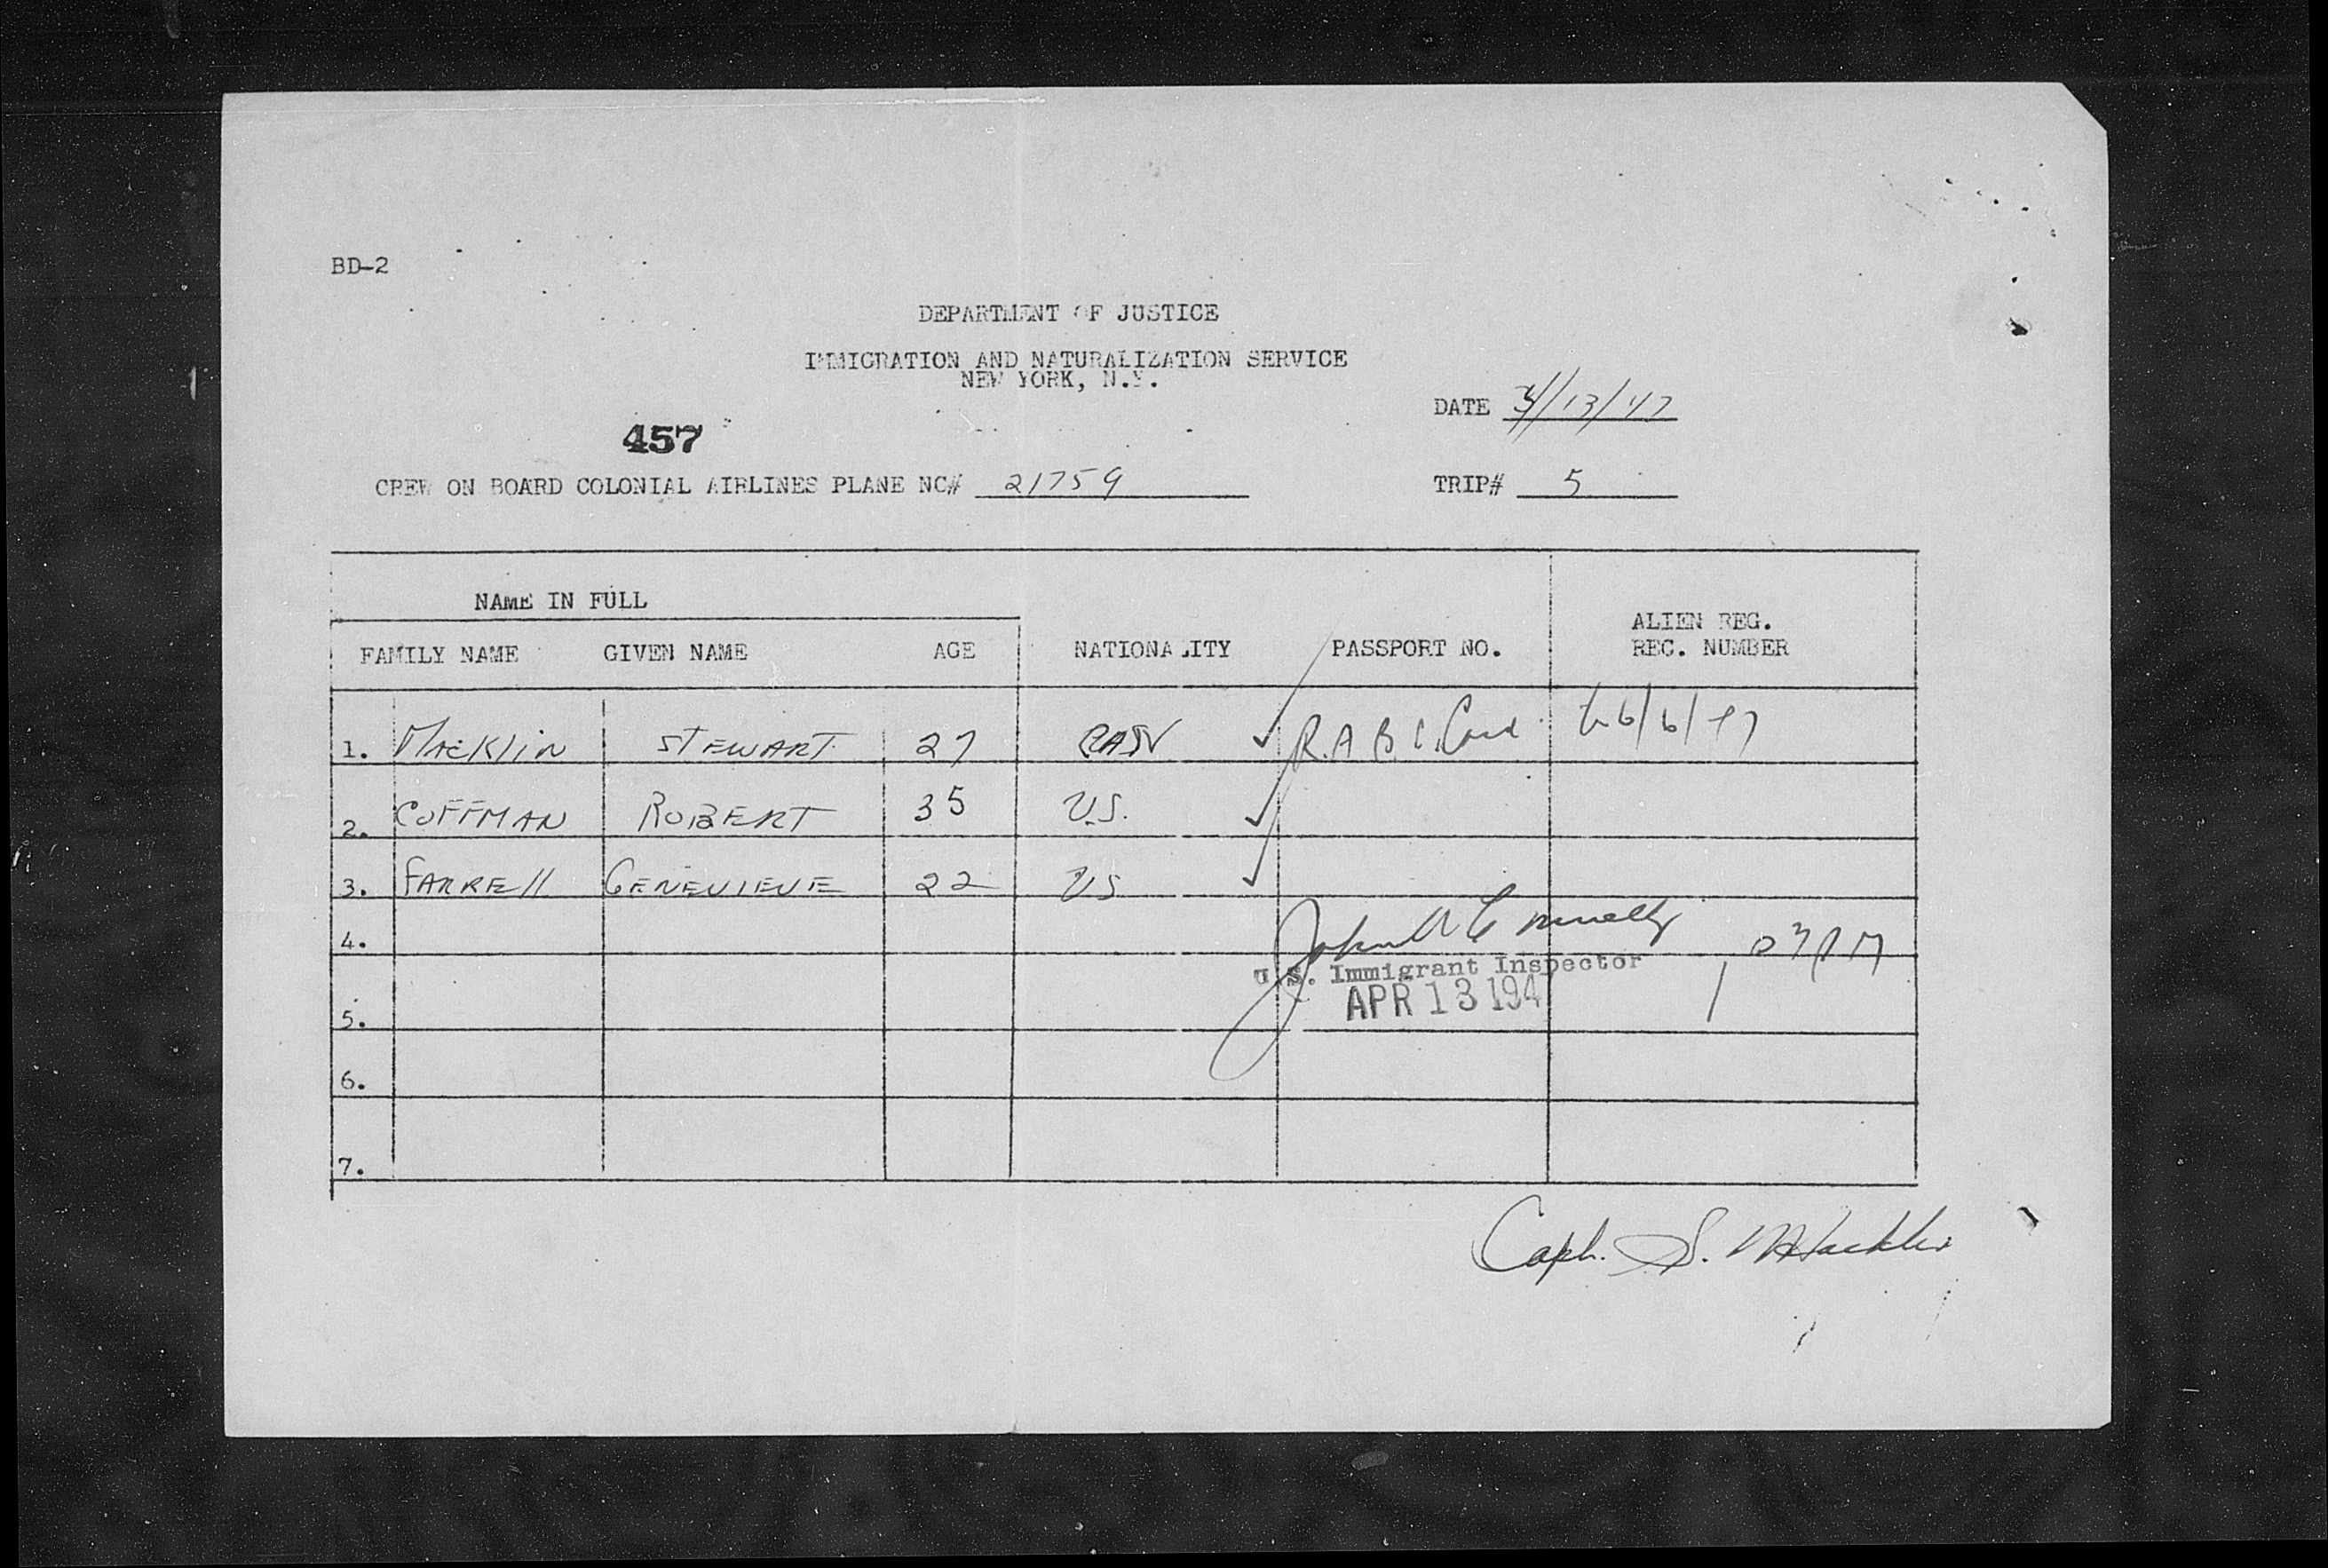 BD-2
DEPARTMENT OF JUSTICE
IMMIGRATION AND NATURALIZATION SERVICE
NEW YORK, N.Y.
DATE 4/13/47
457
CREW ON BOARD COLONIAL AIRLINES PLANE NC# 21759 TRIP# 5
NAME IN FULL
FAMILY NAME GIVEN NAME AGE NATIONALITY PASSPORT NO. ALIEN REG. REC. NUMBER
1. MACKlin STEWART 27 CAN R.A.B.C. Card to 6/6/47
2. COFFMAN ROBERT 35 U.S.
3. FARREll GENEVIEVE 22 US
4.
U.S. Immigrant Inspector
APR 13 194
5.
6.
7.
Capt. S. Macklin